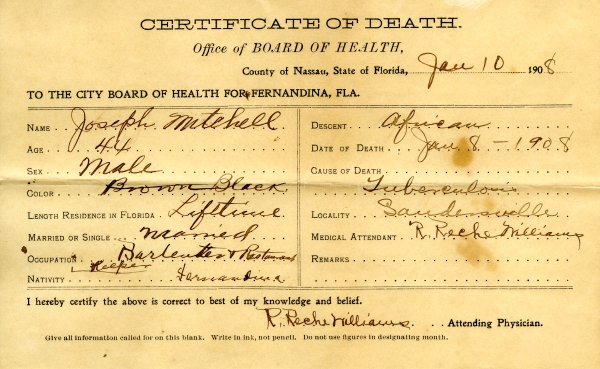 CERTIFICATE OF DEATH.
Office of BOARD OF HEALTH,
County of Nassau, State of Florida, Jan 10 1908
TO THE CITY BOARD OF HEALTH FOR FERNANDINA, FLA.
NAME Joseph Mitchell
AGE 44
SEX Male
COLOR Brown Black
LENGTH RESIDENCE IN FLORIDA Lifetime
MARRIED OR SINGLE Married
OCCUPATION Bartender & Restaurant
Keeper
NATIVITY Fernandina
DESCENT African
DATE OF DEATH Jan 8 - 1908
CAUSE OF DEATH
Tuberculosis
LOCALITY
MEDICAL ATTENDANT R. Reche Williams
REMARKS
I hereby certify the above is correct to best of my knowledge and belief.
R. Reche Williams. Attending Physician.
Give all information called for on this blank. Write in ink, not pencil. Do not use figures in designating month.